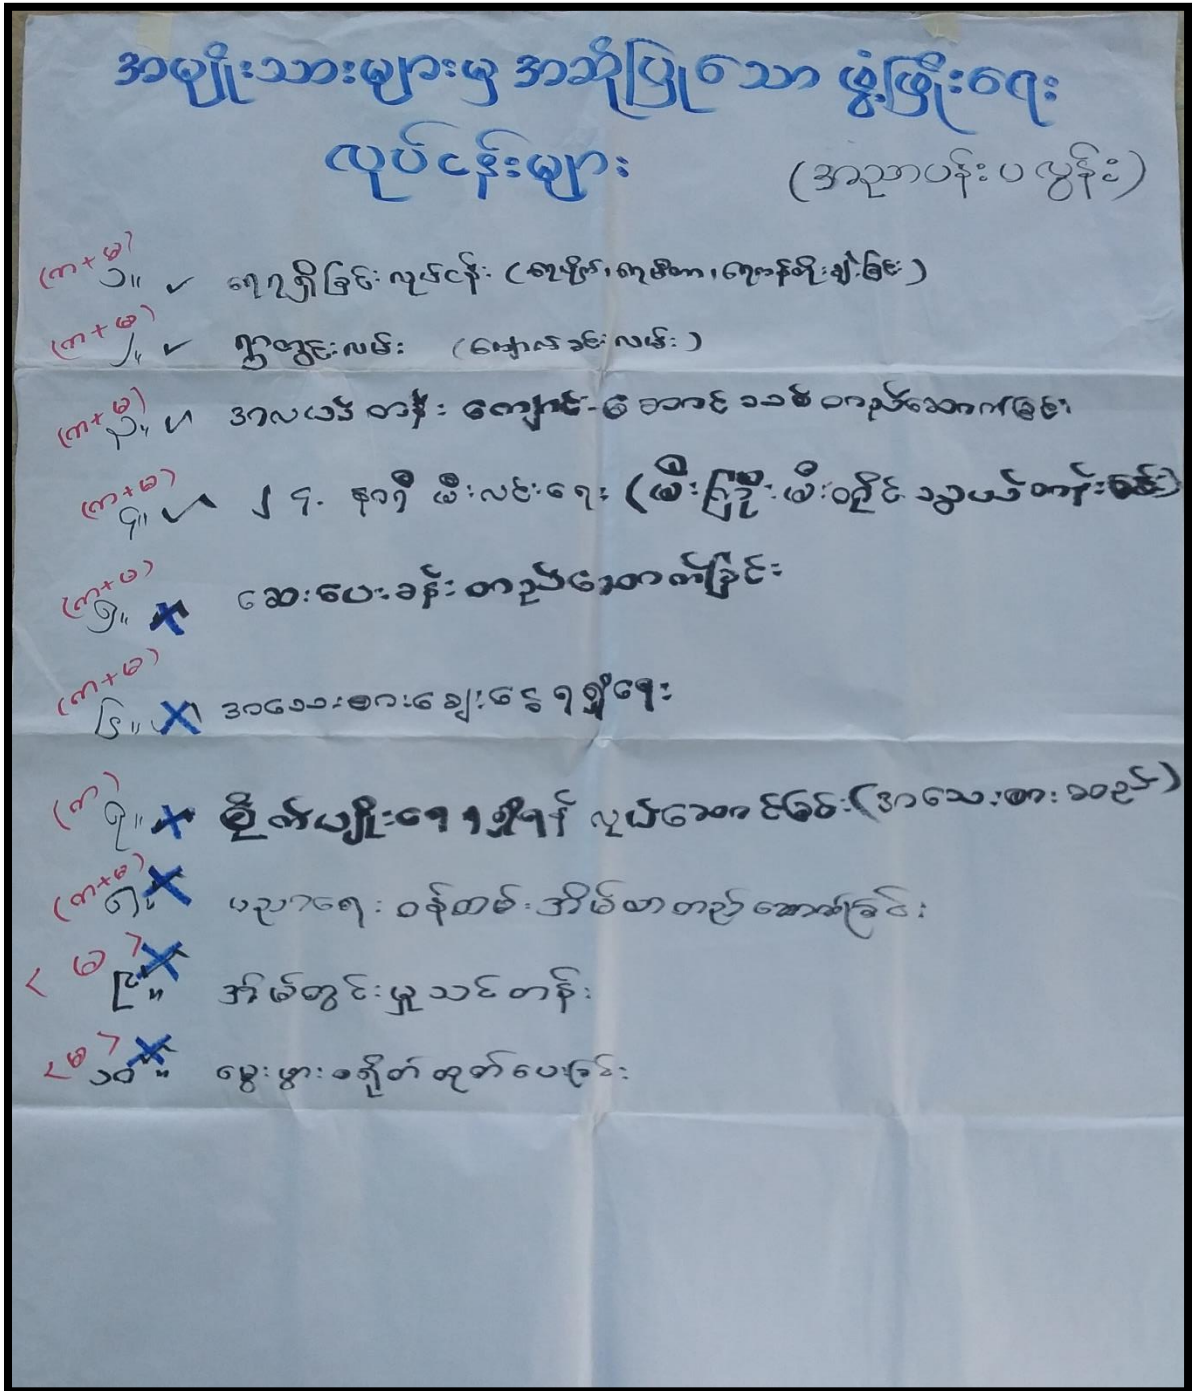 အမျိုးသားများမှ အဆိုပြုသော ဖွံ့ဖြိုးရေး
လုပ်ငန်းများ (အညာပန်းပလွန်း)
(ကာ+မ) ၁။ ✓ ရေရရှိခြင်း လုပ်ငန်း (ရေပိုက်၊ ရေမီတာ၊ ရေကန်တိုးချဲ့ခြင်း)
(ကာ+မ) ၂။ ✓ ရွာတွင်းလမ်း (မျောက်ခင်းလမ်း)
(ကာ+မ) ၃။ အလယ်တန်း ကျောင်း-ဆောင်သစ် တည်ဆောက်ခြင်း
(ကာ+မ) ၄။ ၂၄ နာရီ မီးလင်းရေး (မီးကြိုး မီးတိုင် သွယ်တန်းခြင်း)
(ကာ+မ) ၅။ X ဆေးပေးခန်း တည်ဆောက်ခြင်း
(ကာ+မ) ၆။ X အသေးစားချေးငွေ ရရှိရေး
(ကာ) ၇။ X စိုက်ပျိုးရေ ရရှိရန် လုပ်ဆောင်ခြင်း (အသေးစား ဆည်)
(ကာ+မ) ၈။ X ပညာရေး ဝန်ထမ်း အိမ်ယာ တည်ဆောက်ခြင်း
< မ > ၉။ X အိမ်တွင်းမှု သင်တန်း
< မ > ၁၀။ X မွေးဖွားစရိတ် ထုတ်ပေးခြင်း